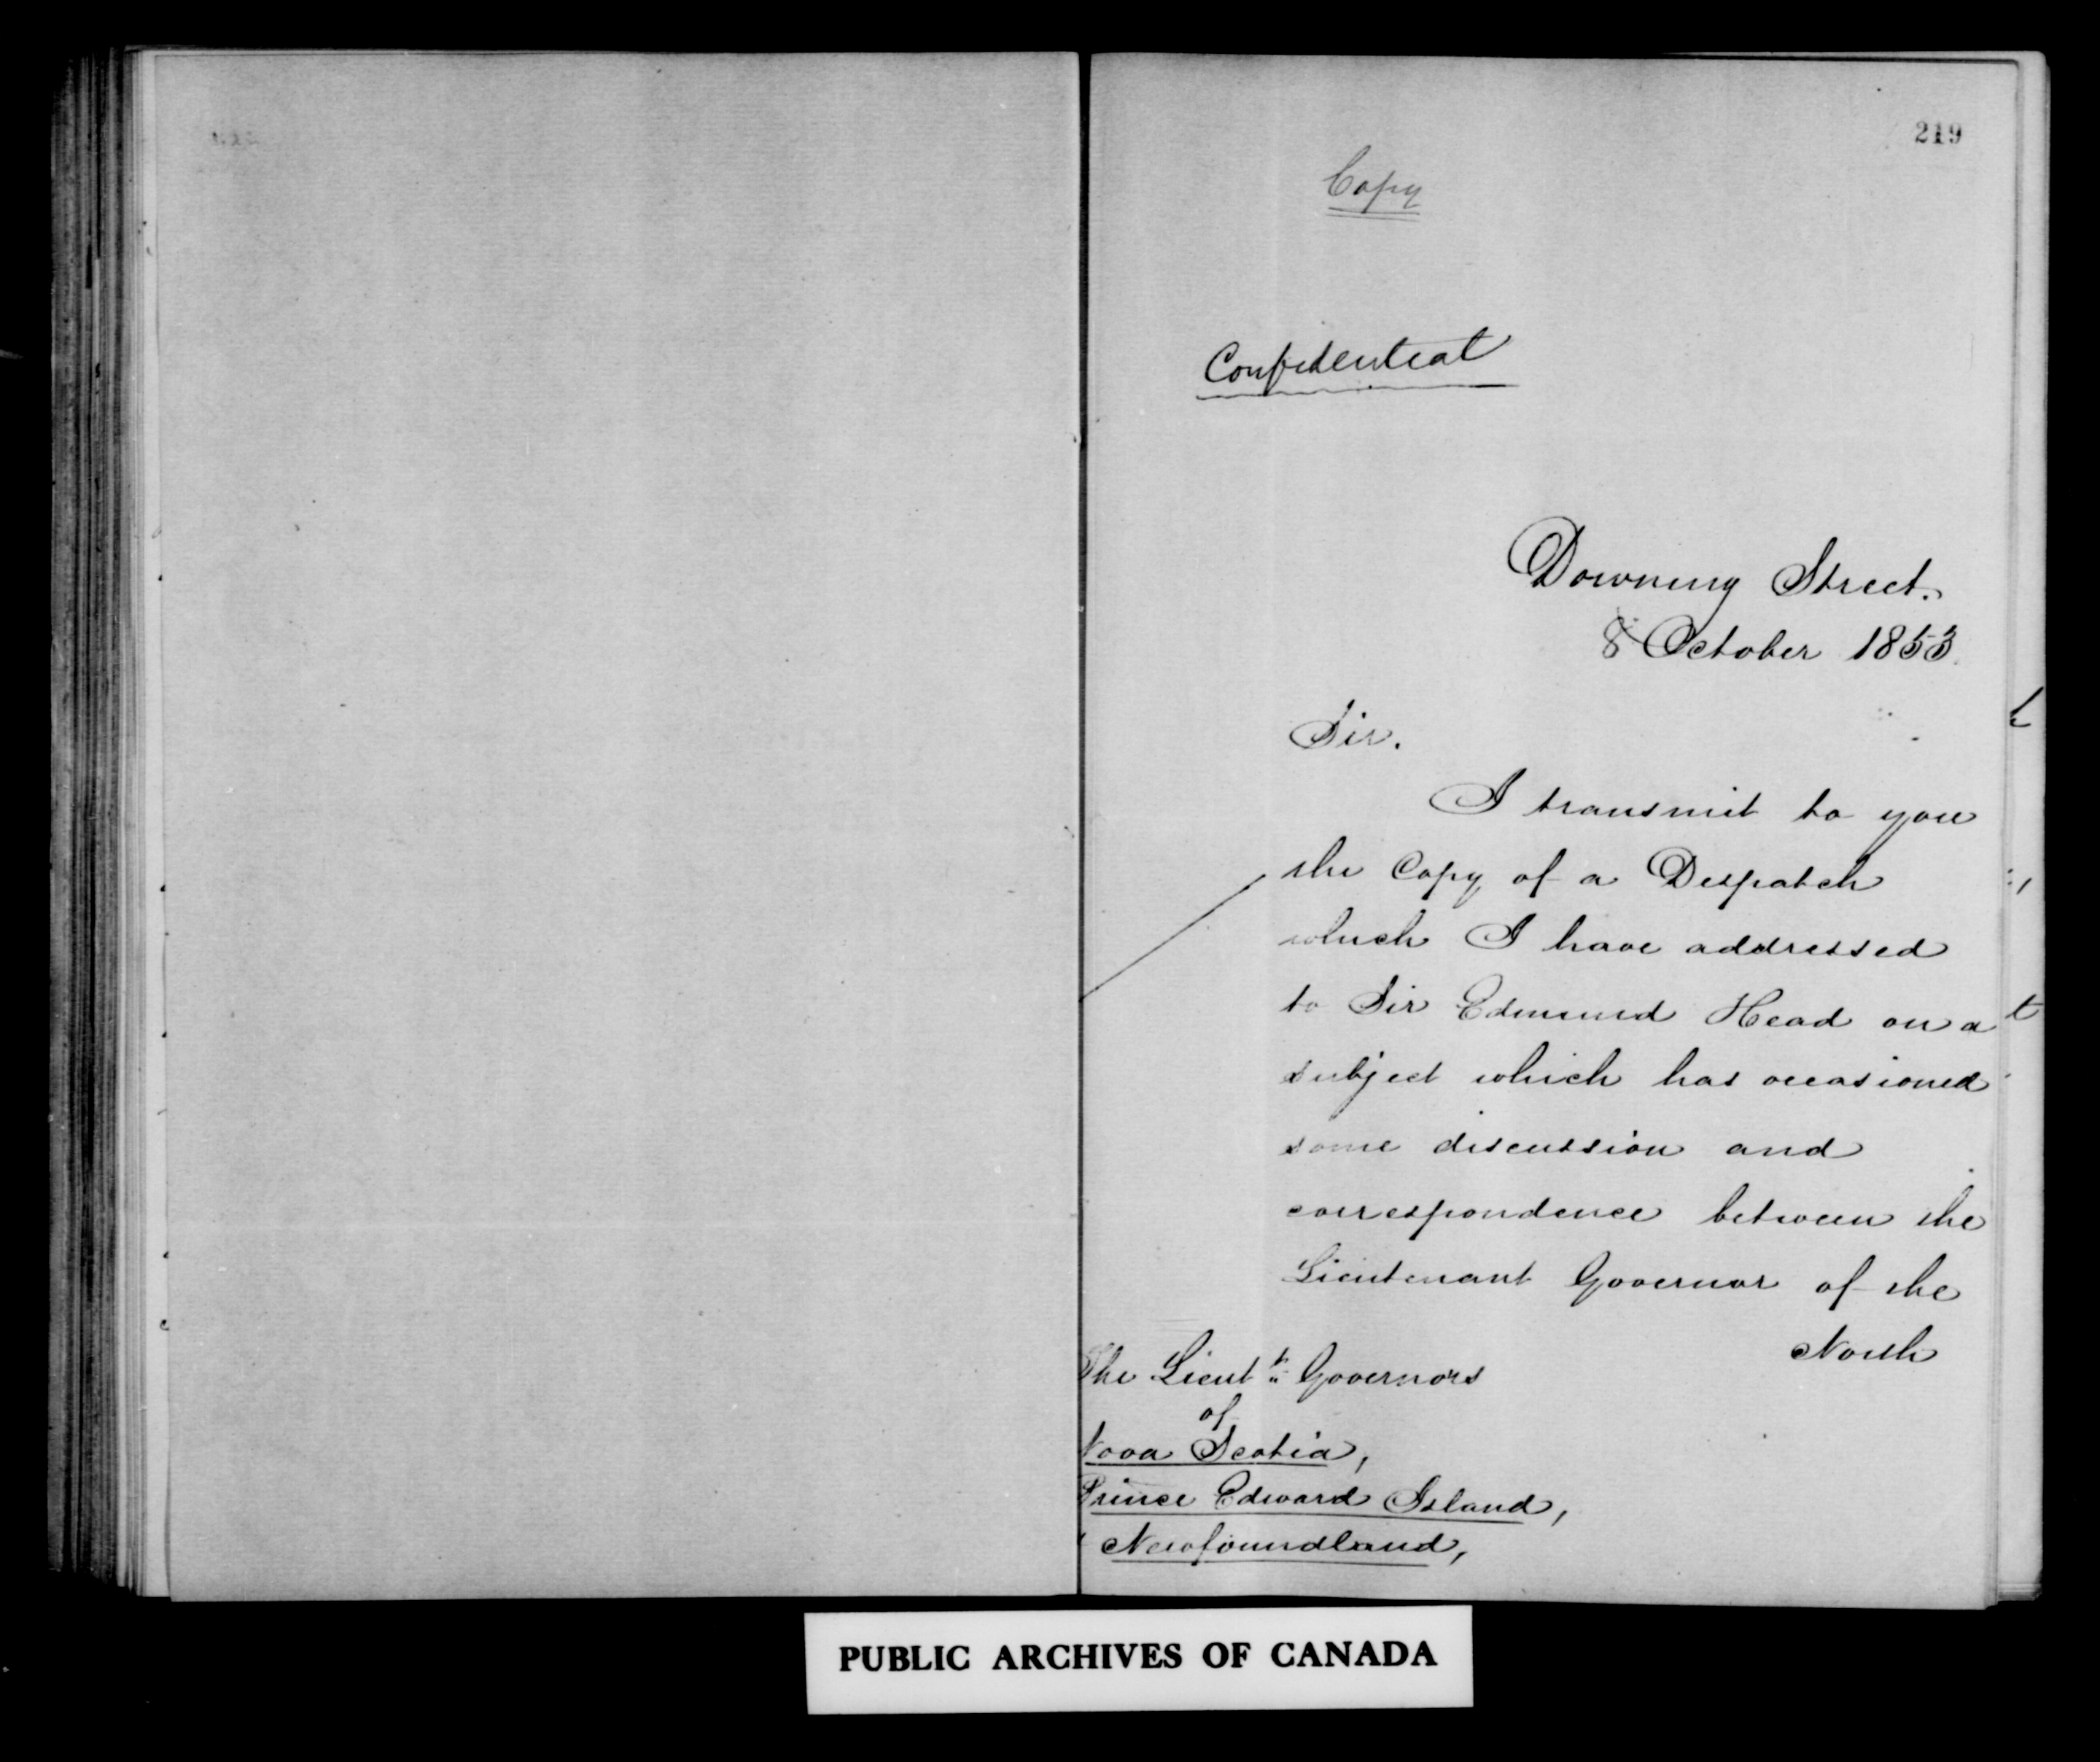 219
Copy
Confidential
Downing Street.
8 October 1853.
Sir.
I transmit to you
the Copy of a Despatch
which I have addressed
to Sir Edmund Head on a
subject which has occasioned
some discussion and
correspondence between the
Lieutenant Governor of the
North
The Lieut.t Governors
of
Nova Scotia,
Prince Edward Island,
Newfoundland,
PUBLIC ARCHIVES OF CANADA